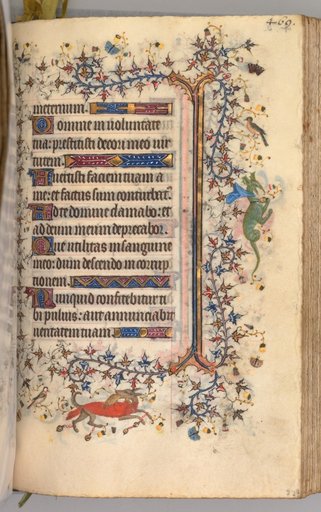 469.
meternum.
Domine in voluntate
tua: prestitisti decori meo vir
tutem.
Avertisti faciem tuam a
me: et factus sum conturbat9.
Ad te domine clamabo: et
ad deum meum deprecabor.
Que utilitas in sanguine
meo: dum descendo in corrup
tionem.
Nunquid confitebitur ti
bi pulvis: aut annunciabit
veritatem tuam